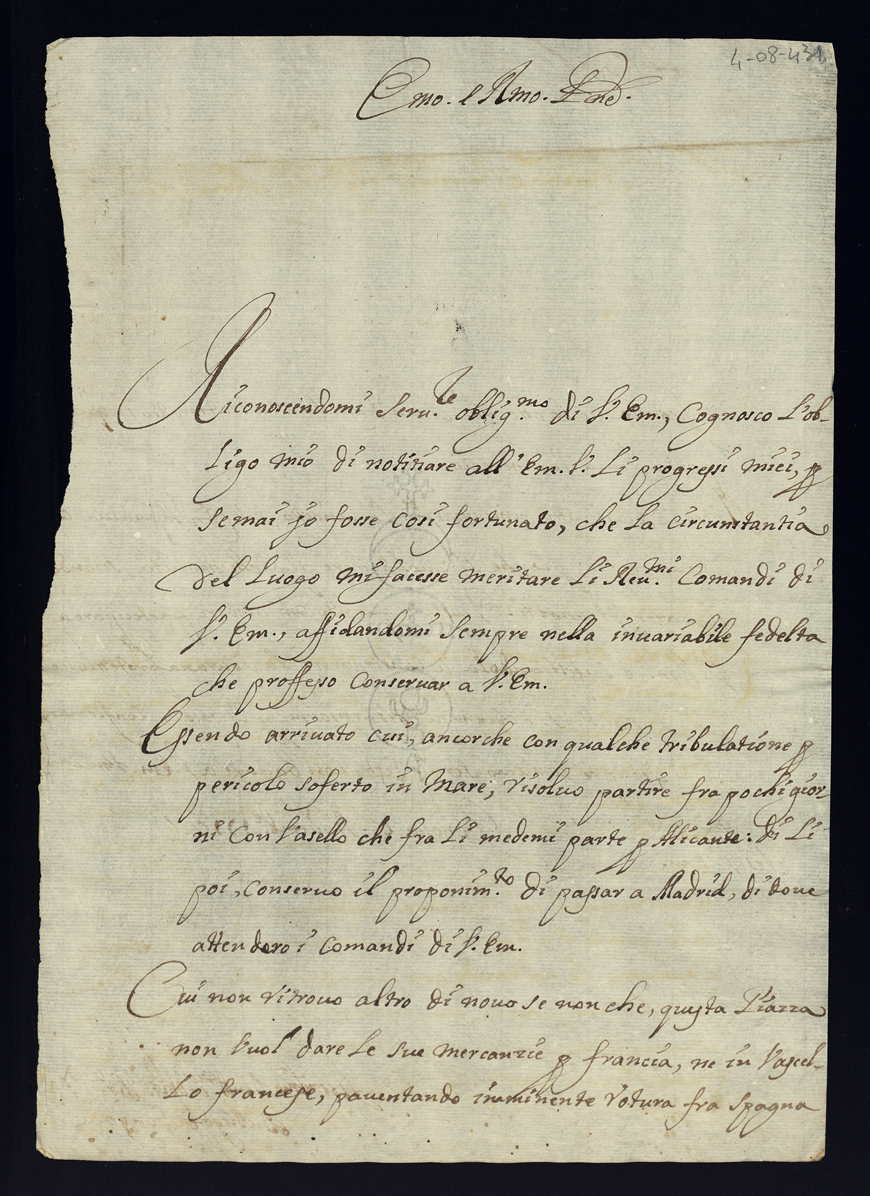 4-08-431
Emo. e Rmo. Pne.
Riconoscendomi Seru.le oblig.mo di V. Em., Cognosco l'ob-
ligo mio di notitiare all' Em. V. li progressi miei, p
se mai jo fosse così fortunato, che la circumstantia
del luogo mi facesse meritare li Reu.mi Comandi di
V. Em., affidandomi sempre nella inuariabile fedelta
che professo conseruar a V. Em.
Essendo arriuato cui, ancorche con qualche tribulatione p
pericolo soferto in Mare, risoluo partire fra pochi gior-
ni con Vasello che fra li medemi parte p Alicante: di li
poi, conseruo il proponim.to di passar a Madrid, di doue
attendero i comandi di V. Em.
Cui non ritrouo altro di nouo se non che, questa Piazza
non vuol dare le sue mercanzie p francia, ne in Vascel-
lo francese, pauentando imminente rotura fra spagna